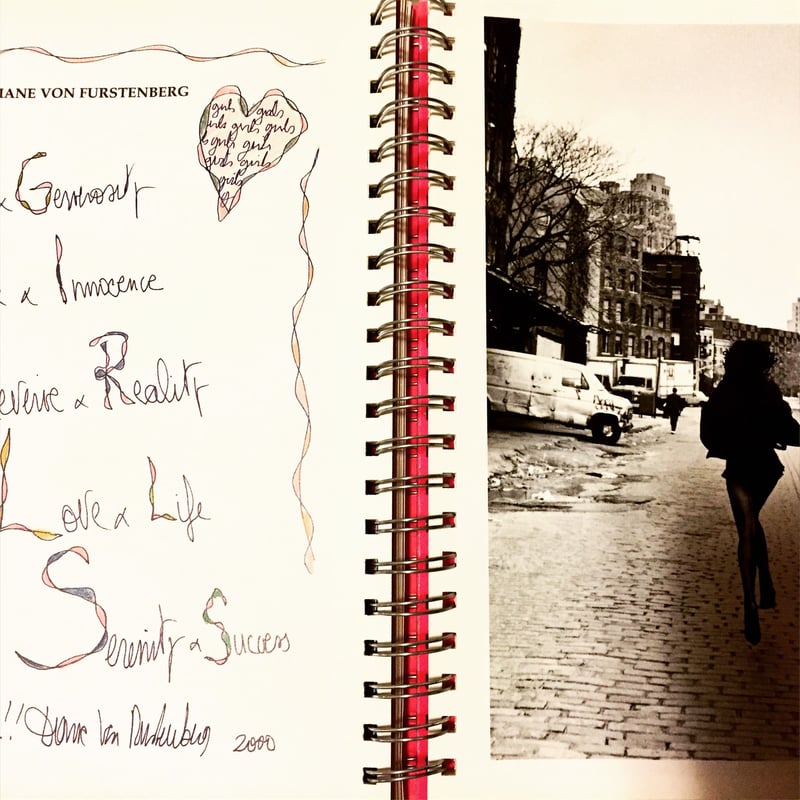 IANE VON FURSTENBERG
girls girls
girls girls girls
girls girls
girls girls
girls
& Generosity
& Innocence
everie & Reality
Love & Life
Serenity & Success
!! Diane Von Furstenberg 2000